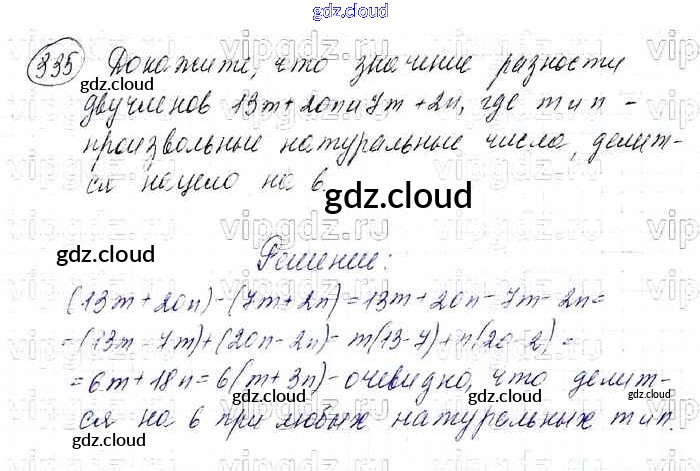 gdz.cloud
335 Докажите, что значение разности
двучленов 13m + 20n и 7m + 2n, где m и n -
произвольные натуральные числа, делит-
ся нацело на 6.
gdz.cloud
gdz.cloud
Решение:
(13m + 20n) - (7m + 2n) = 13m + 20n - 7m - 2n =
= (13m - 7m) + (20n - 2n) = m(13 - 7) + n(20 - 2) =
= 6m + 18n = 6(m + 3n) - очевидно, что делит-
ся на 6 при любых натуральных m и n.
gdz.cloud
gdz.cloud
gdz.cloud
gdz.cloud